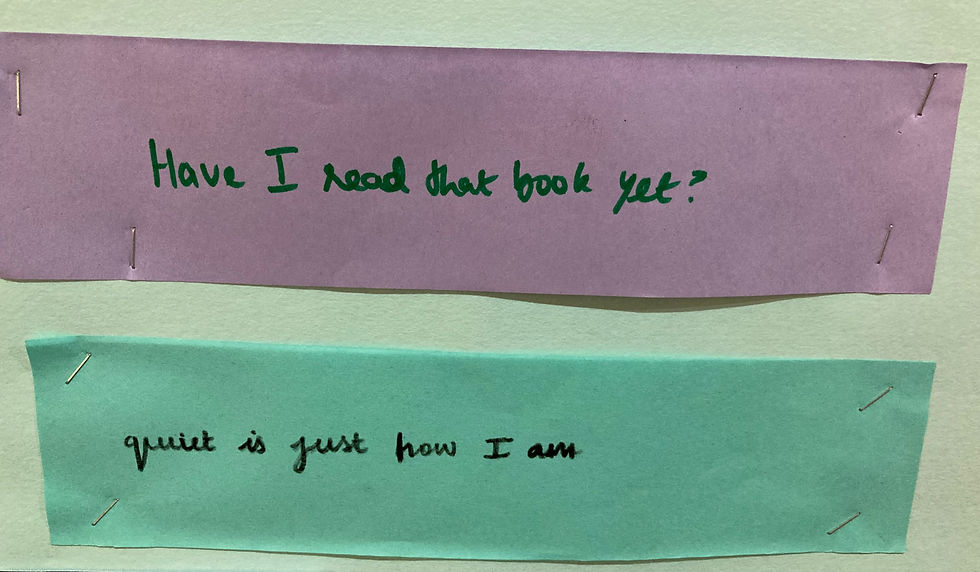 Have I read that book yet?
quiet is just how I am